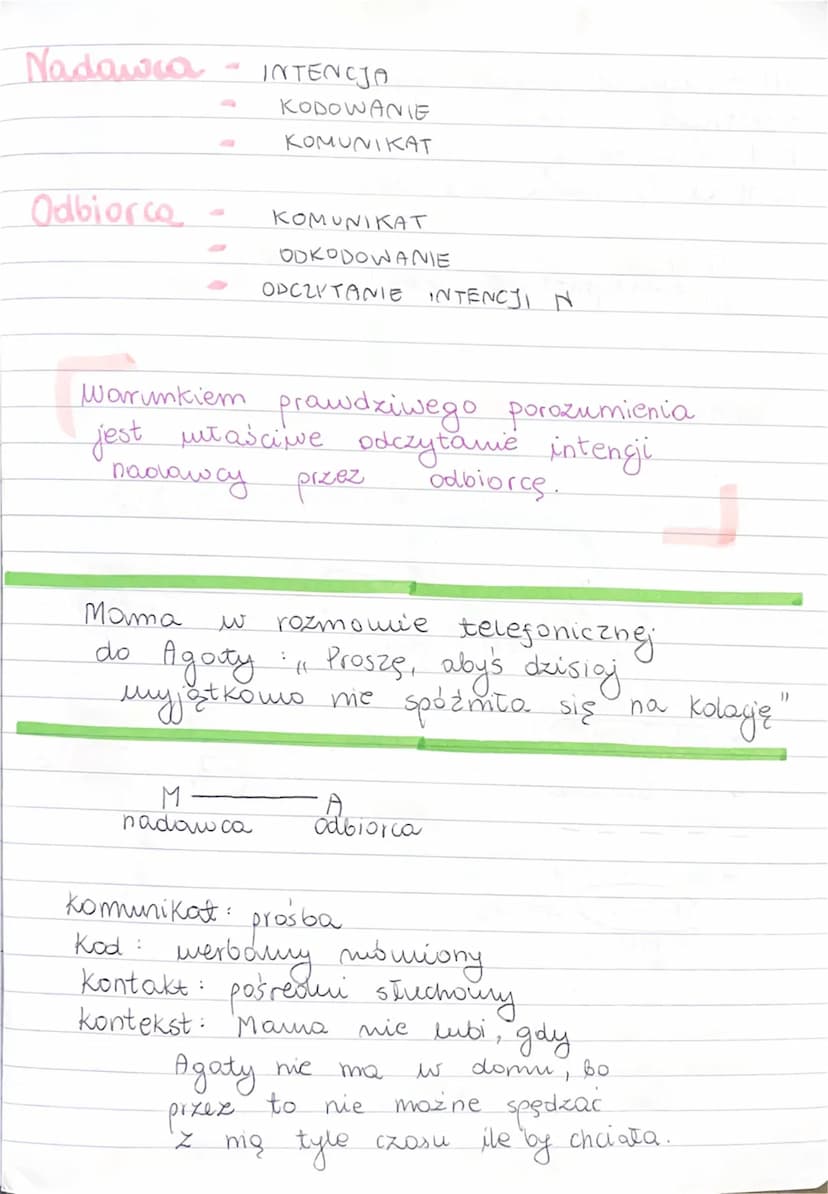 Nadawca - INTENCJA
- KODOWANIE
- KOMUNIKAT
Odbiorca - KOMUNIKAT
- ODKODOWANIE
- ODCZYTANIE INTENCJI N
Warunkiem prawdziwego porozumienia
jest właściwe odczytanie intencji
nadawcy przez odbiorcę.
Mama w rozmowie telefonicznej
do Agaty : „ Proszę, abyś dzisiaj
wyjątkowo nie spóźniła się na kolację"
M — A
nadawca odbiorca
Komunikat : prośba
Kod : werbalny mówiony
Kontakt : pośredni słuchowy
Kontekst : Mama nie lubi, gdy
Agaty nie ma w domu, bo
przez to nie może spędzać
z nią tyle czasu ile by chciała.